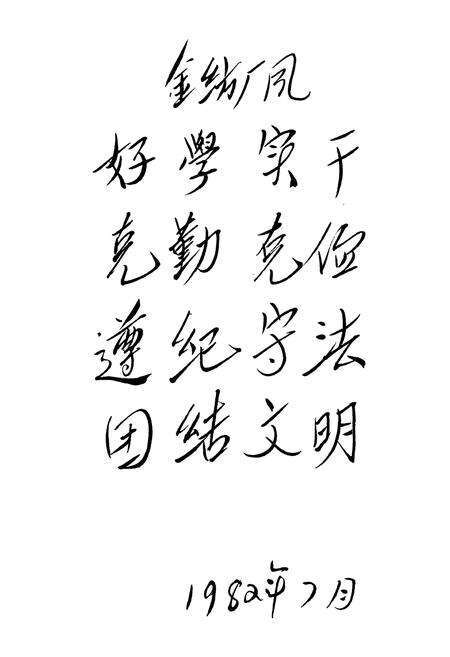 金纺厂风
好學实干
克勤克俭
遵纪守法
团结文明
1982年7月